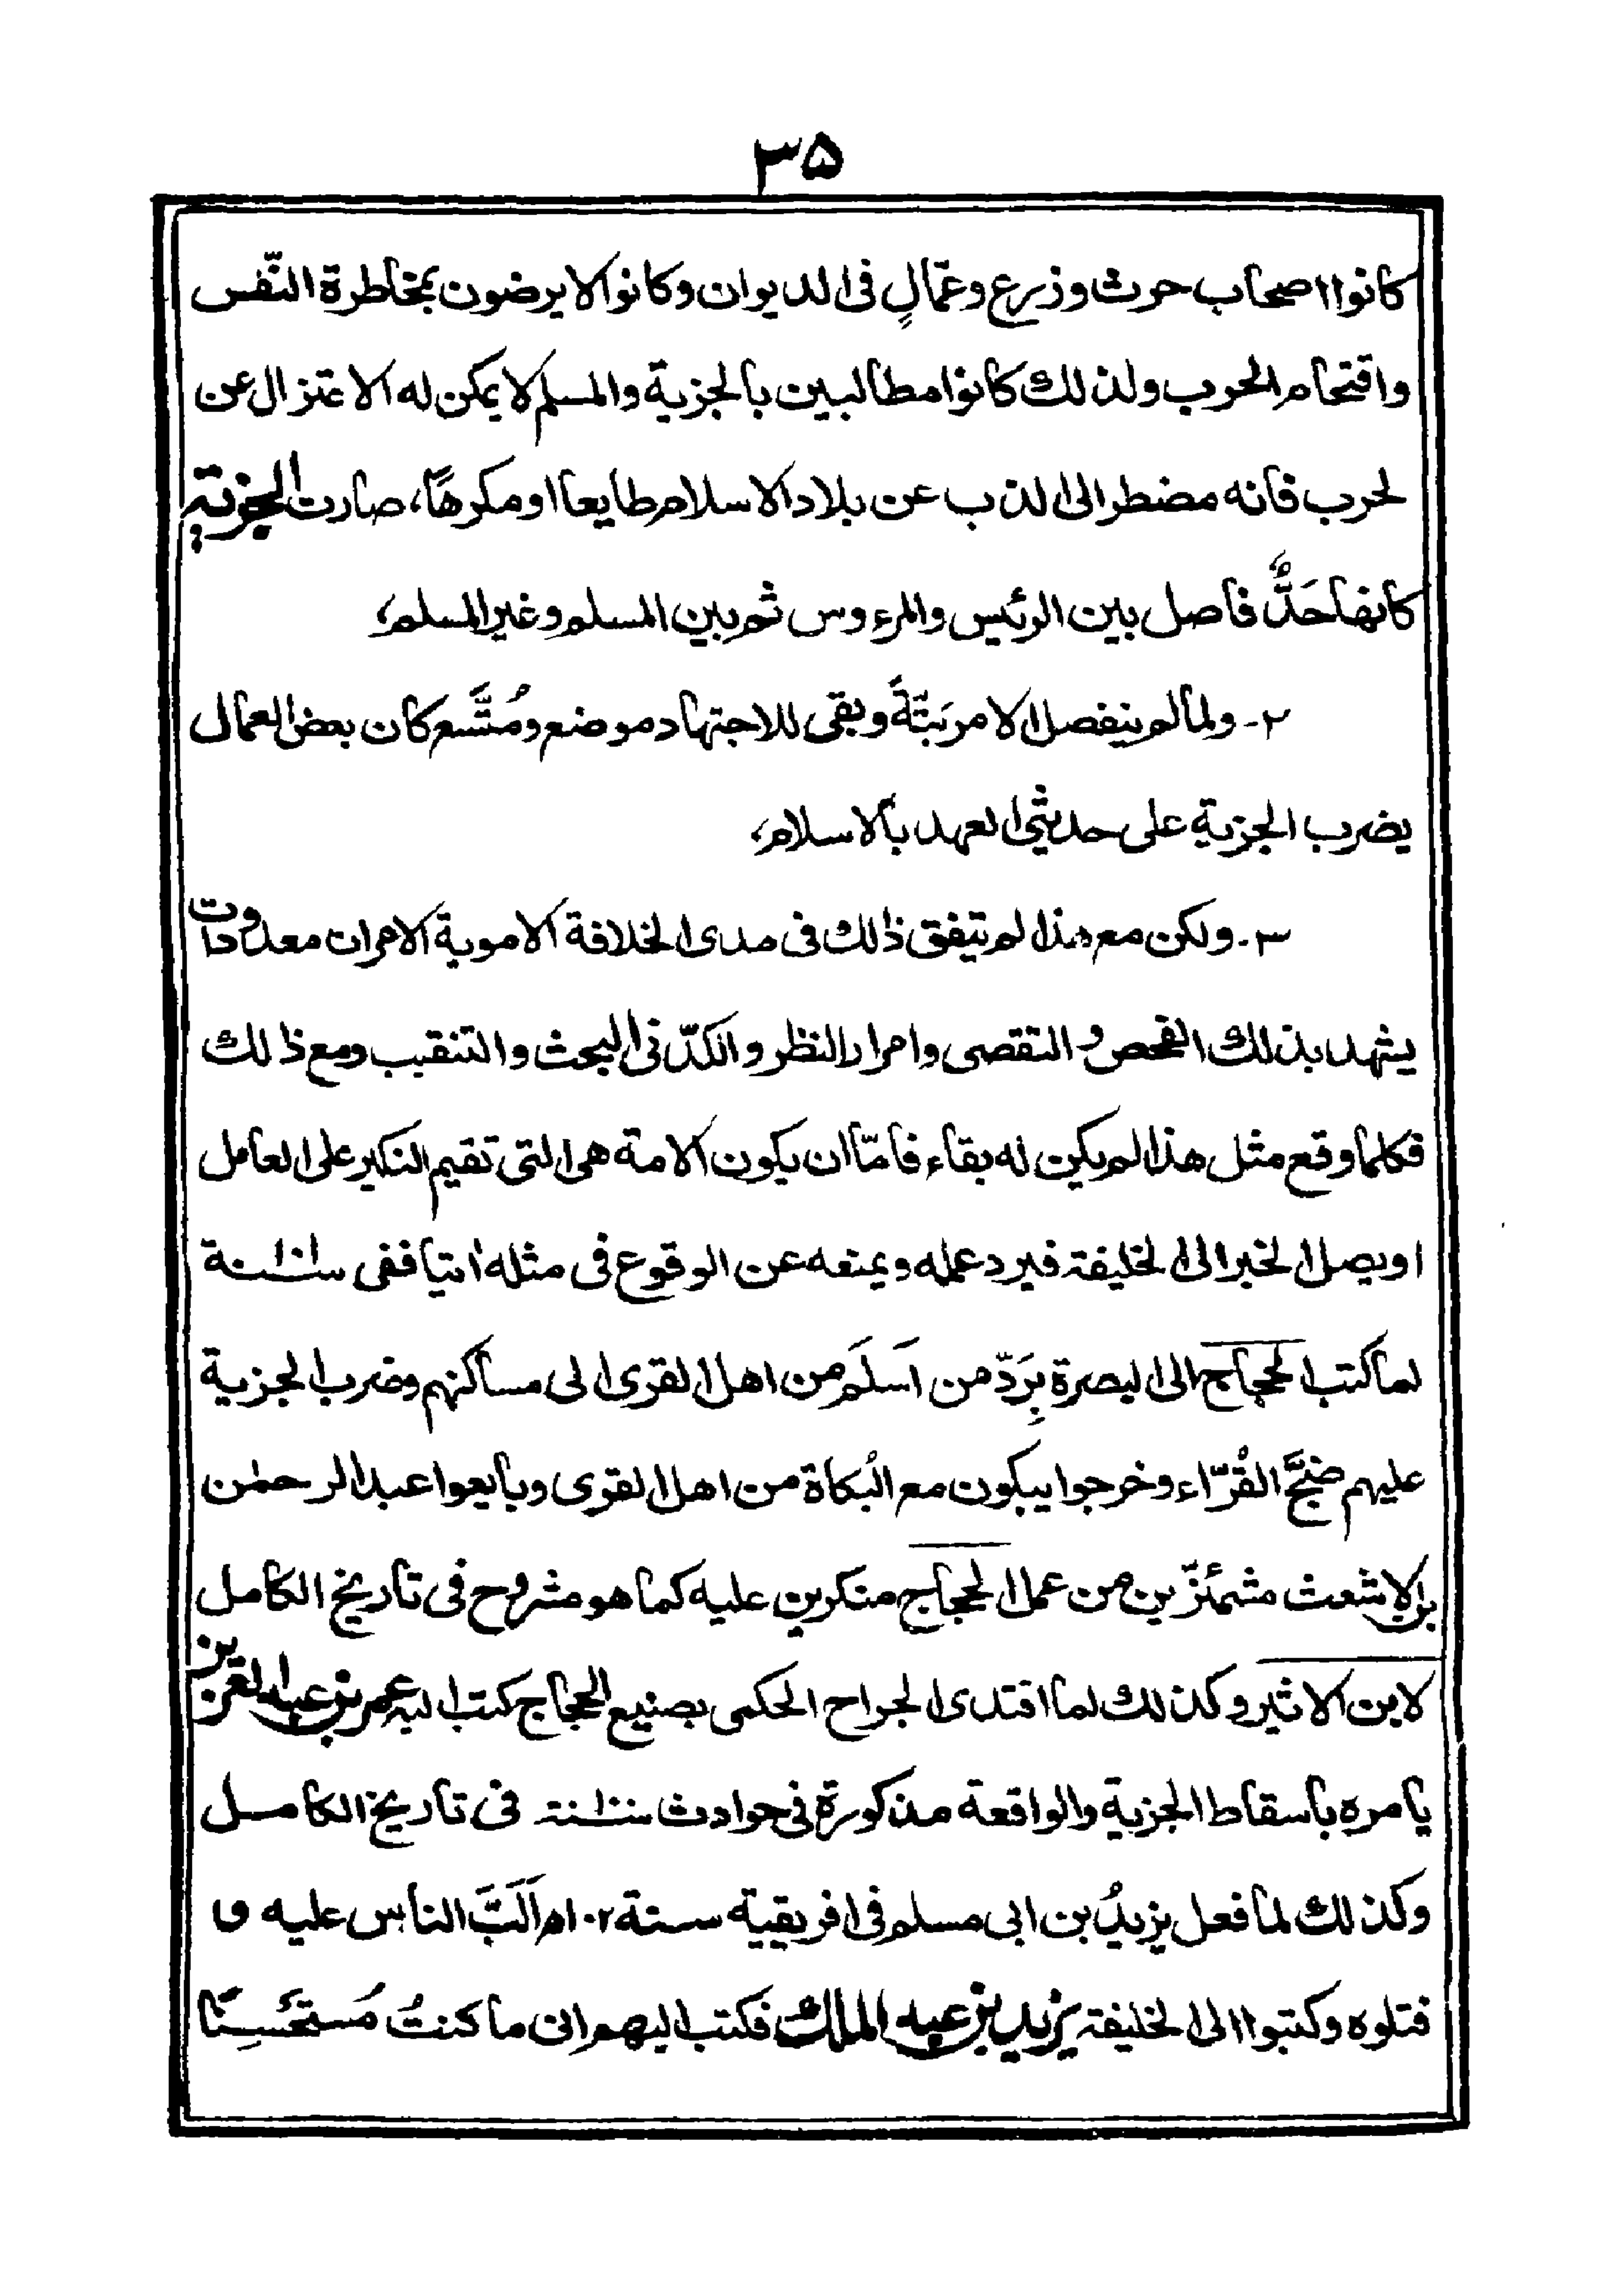 ٣٥
كانوا اصحاب حرث وزرع وعمّالٍ فى الديوان وكانوا لا يرضون بمخاطرة النّفس
واقتحام الحرب ولذلك كانوا مطالبين بالجزية والمسلم لا يمكن له الاعتزال عن
لحرب فانه مضطر الى الذب عن بلاد الاسلام طايعا او مكرهًا، صارت الجزية
كانها حَدٌّ فاصل بين الرئيس والمرءوس ثم بين المسلم وغير المسلم،
٢- ولما لم ينفصل الامر بَتَّةً وبقى للاجتهاد موضع ومُتَّسع كان بعض العمال
يضرب الجزية على حديثى العهد بالاسلام،
٣- ولكن مع هذا لم يتفق ذالك فى مدى الخلافة الاموية الا مرات معدودات
يشهد بذلك الفحص والتقصى وامرار النظر والكدّ فى البحث والتنقيب ومع ذالك
فكلما وقع مثل هذا لم يكن له بقاء فامّا ان يكون الامة هى التى تقيم النكير على العامل
او يصل الخبر الى الخليفة فيرد عمله ويمنعه عن الوقوع فى مثله اتيا ففى
لما كتب الحجاج الى البصرة بِرَدّ من اَسلَمَ من اهل القرى الى مساكنهم وضرب الجزية
عليهم ضجَّ القُرّاء وخرجوا يبكون مع البُكاة من اهل القرى وبايعوا عبد الرحمٰن
بن الاشعث مشمئزّين من عمل الحجاج منكرين عليه كما هو مشروح فى تاريخ الكامل
لابن الاثير وكذلك لما اقتدى الجراح الحكمى بصنيع الحجاج كتب اليه عمر بن عبد العزيز
يامره باسقاط الجزية والواقعة مذكورة فى حوادث سنة فى تاريخ الكامل
وكذلك لما فعل يزيدُ بن ابى مسلم فى افريقية سنة ١٠٢ه اَلَبَّ الناس عليه و
قتلوه وكتبوا الى الخليفة يزيد بن عبد الملك فكتب اليهم انى ما كنتُ مُستَحْسِنًا